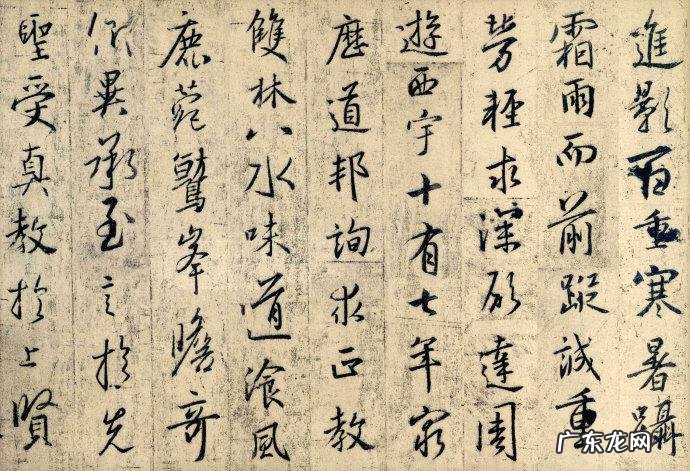 進影百重寒暑躡
霜雨而前蹤誠重
勞輕求深願達周
遊西宇十有七年窮
歷道邦詢求正教
雙林八水味道飡風
鹿菀鷲峯瞻奇
仰異承至言於先
聖受真教於上賢
广东龙网